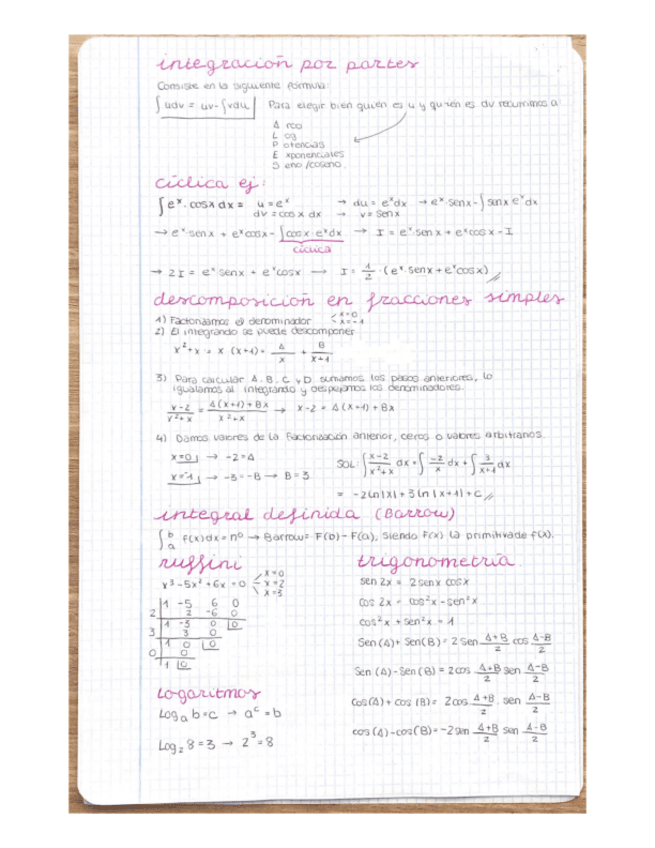 integración por partes
Consiste en la siguiente fórmula:
∫udv = uv-∫vdu Para elegir bien quién es u y quién es dv recurrimos a:
A rco
L og
P otencias
E xponenciales
S eno/coseno.
cíclica ej:
∫eˣ·cosx dx = u=eˣ → du = eˣdx → eˣ·senx-∫senx eˣdx
dv=cosx dx → v=senx
→ eˣ·senx + eˣcosx-∫cosx·eˣdx → I = eˣ·senx + eˣcosx-I
cíclica
→ 2I = eˣsenx + eˣcosx → I = 1/2·(eˣ·senx+eˣcosx)
descomposición en fracciones simples
1) Factorizamos el denominador x=0
x=-1
2) El integrando se puede descomponer
x²+x = x (x+1) = A/x + B/x+1
3) Para calcular A, B, C y D sumamos los pasos anteriores, lo
igualamos al integrando y despejamos los denominadores.
x-2/x²+x = A(x+1)+Bx/x²+x → x-2 = A(x+1)+Bx
4) Damos valores de la factorización anterior, ceros o valores arbitrarios.
x=0 → -2=A
x=-1 → -3=-B → B=3
SOL: ∫x-2/x²+x dx = ∫-2/x dx + ∫3/x+1 dx
= -2ln|x|+3ln|x+1|+C
integral definida (Barrow)
∫ₐᵇ f(x)dx = nº → Barrow = F(b)-F(a), siendo F(x) la primitiva de f(x).
ruffini
x³-5x²+6x=0 x=0
x=2
x=3
1 -5 6 0
2 2 -6 0
1 -3 0 0
3 3 0
1 0 0
0 0
1 0
Logaritmos
Logₐ b=c → aᶜ=b
Log₂ 8=3 → 2³=8
trigonometría
sen 2x = 2senx cosx
cos 2x = cos²x-sen²x
cos²x + sen²x = 1
Sen(A)+Sen(B) = 2Sen A+B/2 cos A-B/2
Sen(A)-Sen(B) = 2cos A+B/2 sen A-B/2
Cos(A)+cos(B) = 2cos A+B/2 . sen A-B/2
cos(A)-cos(B) = -2sen A+B/2 sen A-B/2